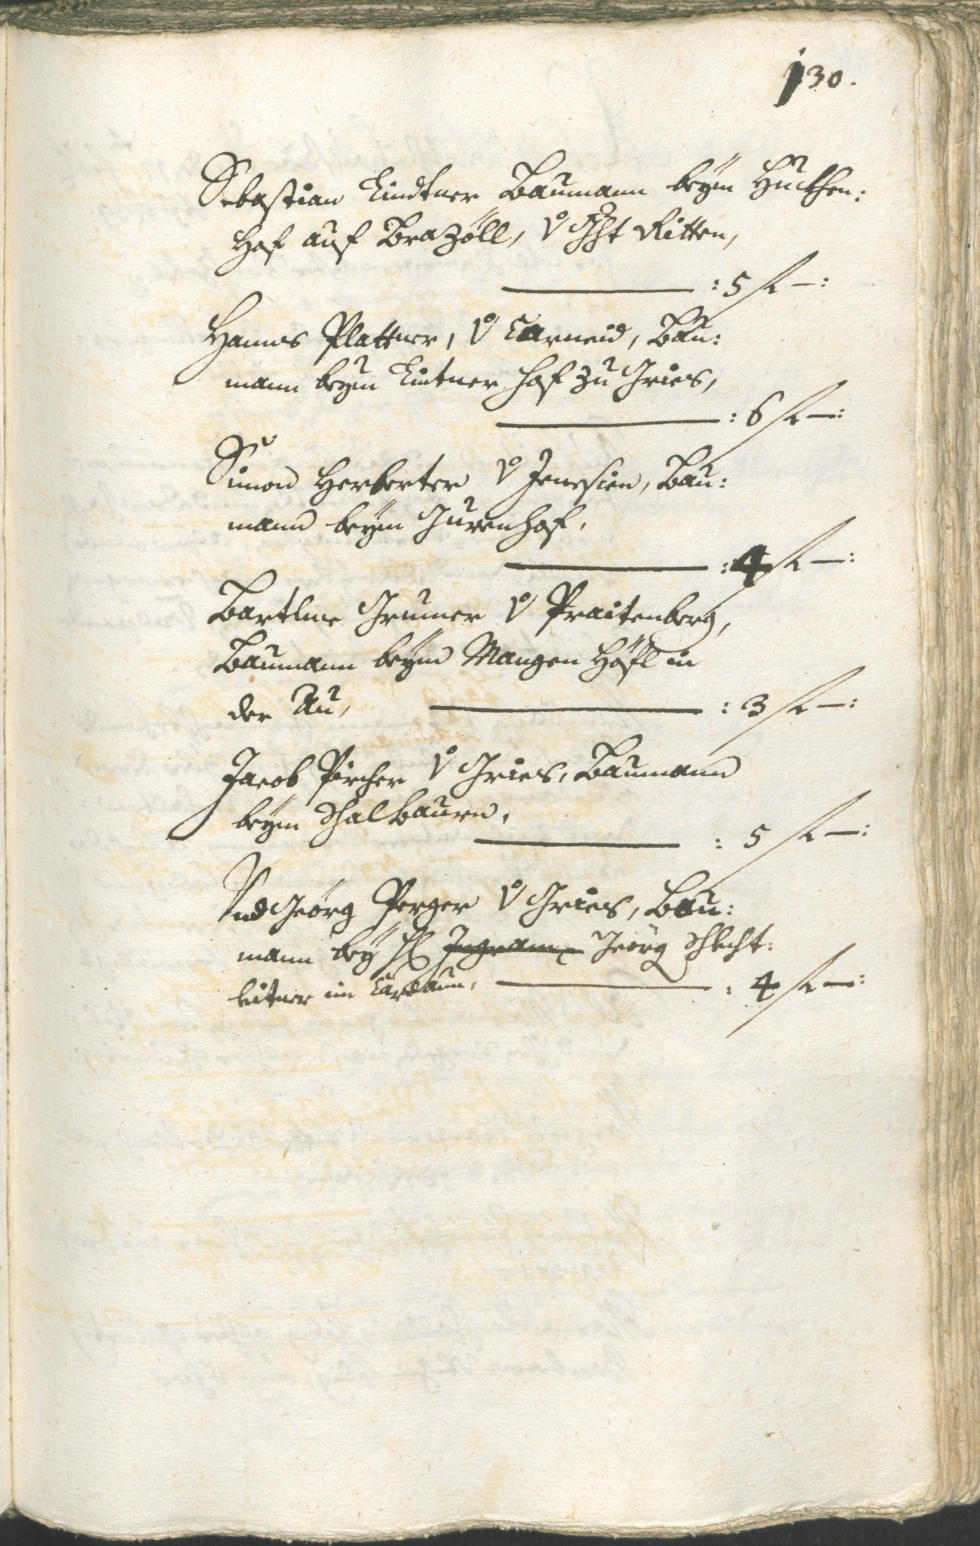 130.
Sebastian Lindtner Baumann beÿm Huethen:
hof auf Brazöll, v Ghrt Ritten,
: 5 f —:
Hanns Plattner, v Carneid, Bau:
mann beÿm Lintner hof zu Gries,
: 6 f —:
Simon Herberter v Jenesien, Bau:
mann beÿm Jurenhof.
: 4 f —:
Bartlme Grumer v Praitenberg,
Baumann beÿm Mangen Höfl in
der Au, : 3 f —:
Jacob Pircher v Gries, Baumann
beÿm Schalbaurn,
: 5 f —:
Und Georg Perger v Gries, Bau:
mann beÿ H Ingram Georg Schlecht:
leitner im Cardaun, : 4 f —: